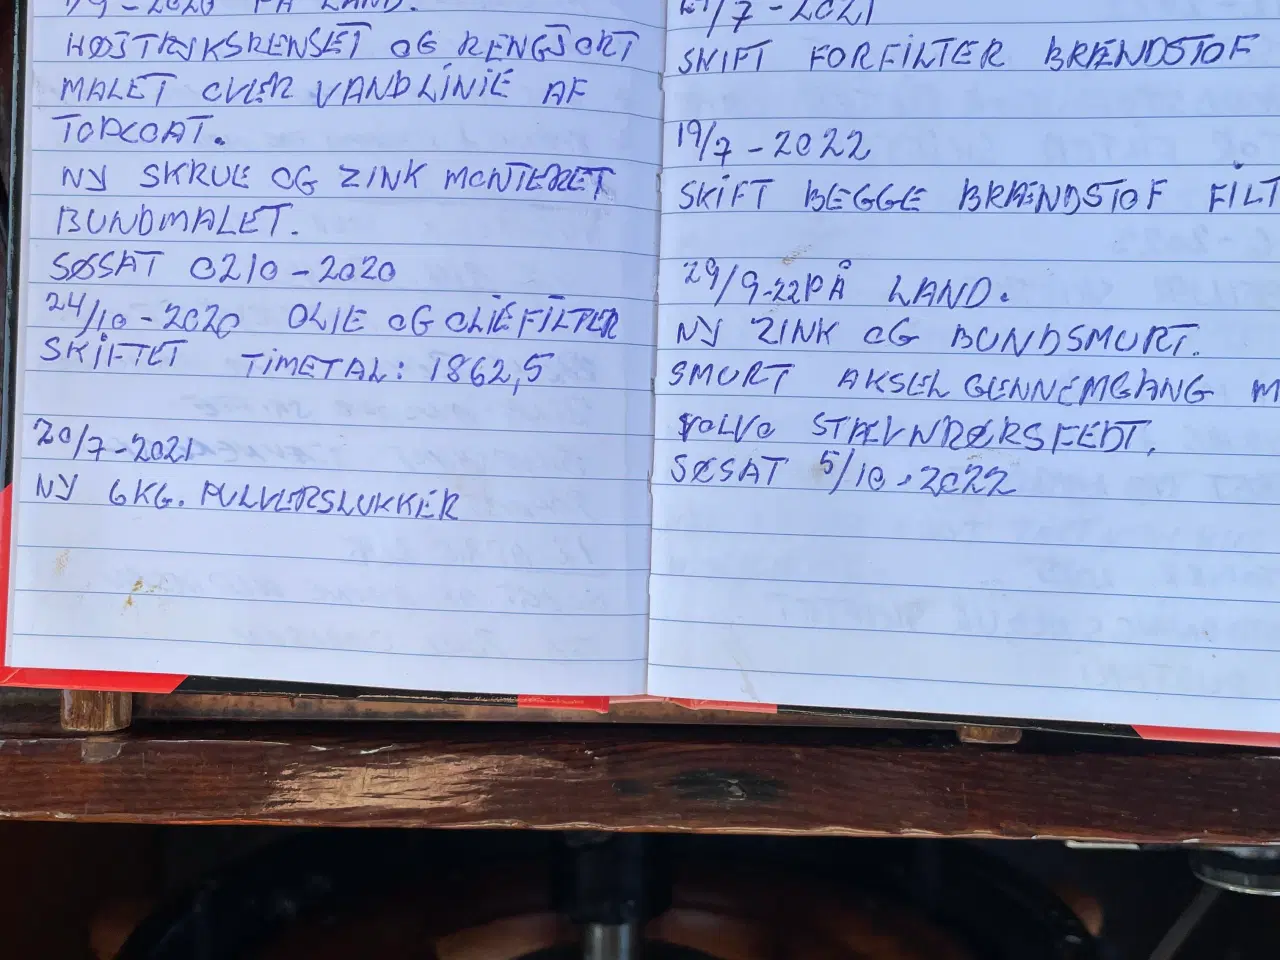 1/9-2020 PÅ LAND.
HØJTRYKSRENSET OG RENGJORT
MALET OVER VANDLINIE AF
TOPCOAT.
NY SKRUE OG ZINK MONTERET
BUNDMALET.
SØSAT 0210-2020
24/10-2020 OLIE OG OLIEFILTER
SKIFTET TIMETAL: 1862,5
20/7-2021
NY 6KG. PULVERSLUKKER
/7-2021
SKIFT FORFILTER BRÆNDSTOF
19/7-2022
SKIFT BEGGE BRÆNDSTOF FILT
29/9-22 PÅ LAND.
NY ZINK OG BUNDSMURT.
SMURT AKSEL GENNEMGANG M
VOLVO STÆVNRØRSFEDT.
SØSAT 5/10-2022